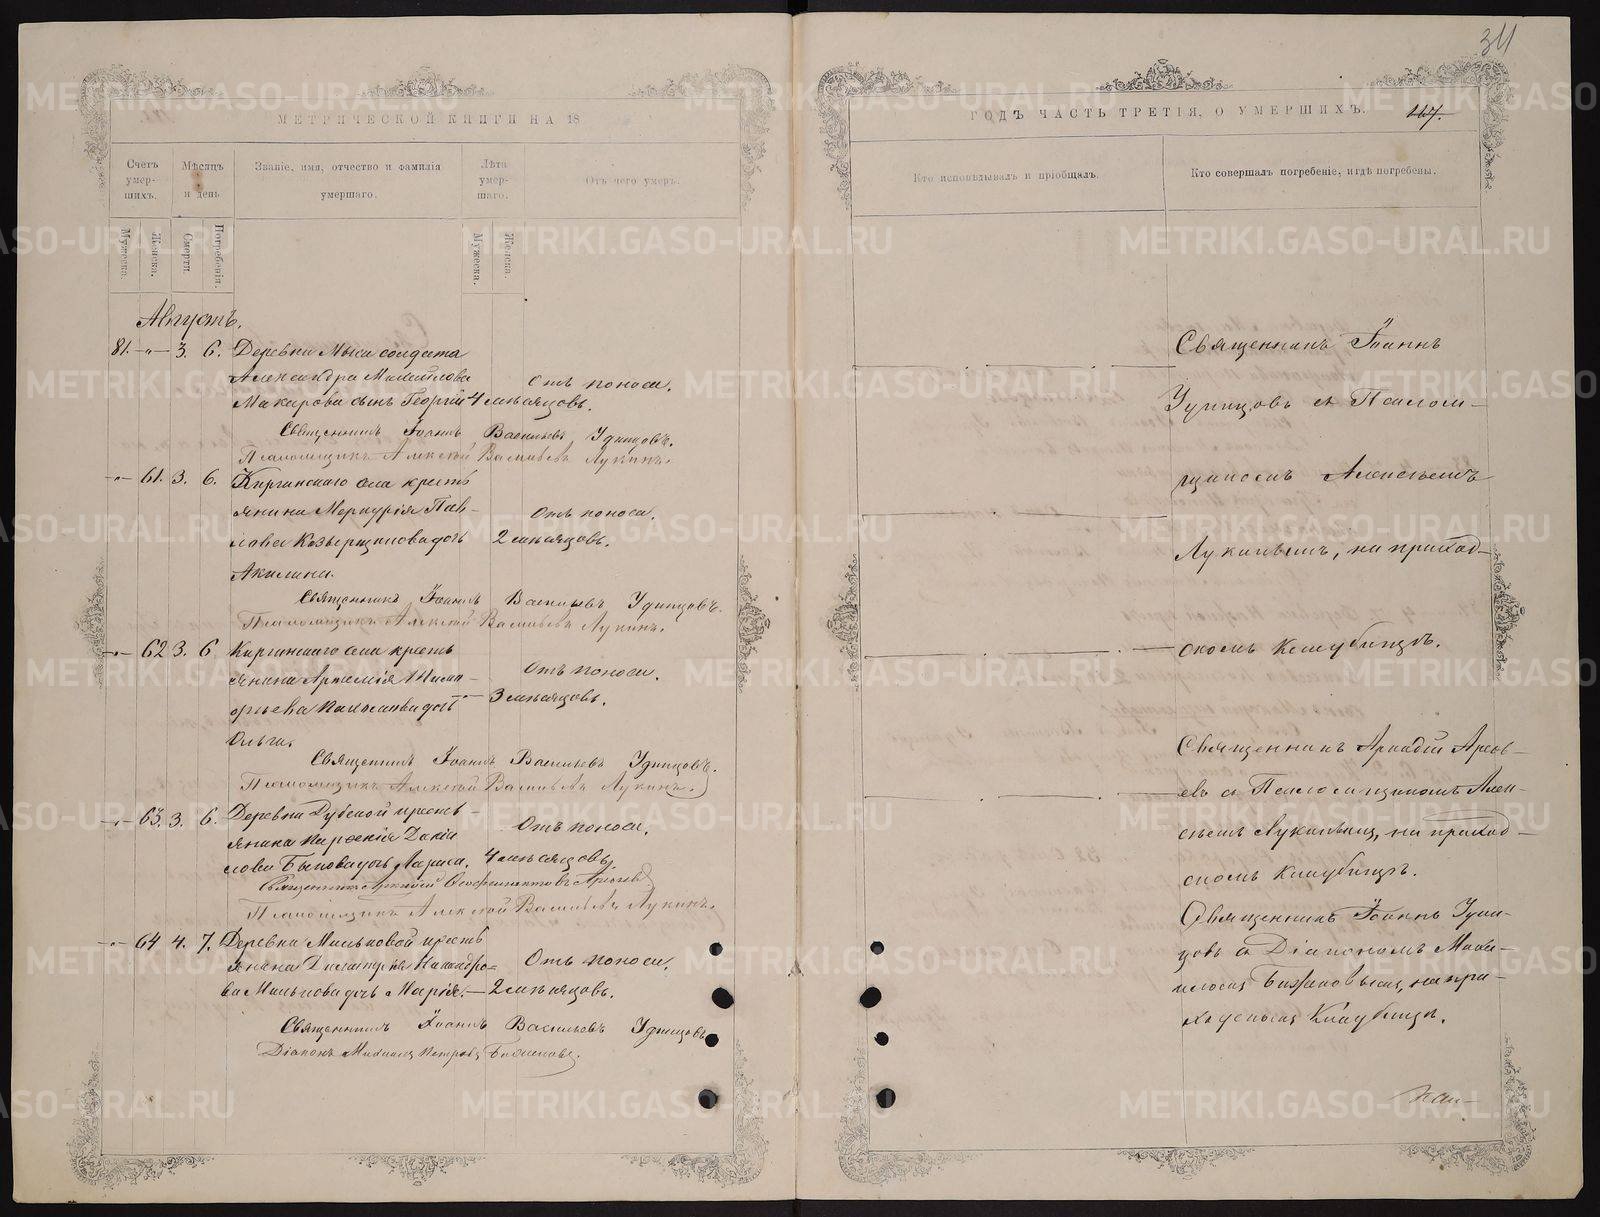 34
МЕТРИЧЕСКОЙ КНИГИ НА 18
ГОДЪ ЧАСТЬ ТРЕТІЯ, О УМЕРШИХЪ.
117.
Счетъ умер-шихъ.
Мѣсяцъ и день
Званіе, имя, отчество и фамилія умершаго.
Лѣта умер-шаго.
Отъ чего умеръ.
Кто исповѣдывалъ и пріобщалъ.
Кто совершалъ погребеніе, и гдѣ погребены.
Мужеска.
Женска.
Смерти.
Погребенія.
Мужеска.
Женска.
Августъ.
81. -"- 3. 6. Деревни Мыса солдата
Александра Михайлова
Отъ поноса.
Макарова сынъ Георгій 4 мѣсяцовъ.
Священникъ Іоаннъ Васильевъ Удинцовъ.
Псаломщикъ Алексѣй Васильевъ Лукинъ.
-"- 61. 3. 6. Киргинскаго села кресть
янина Меркурія Пав-
Отъ поноса.
лова дочь 2 мѣсяцовъ.
Акилина.
Священникъ Іоаннъ Васильевъ Удинцовъ.
Псаломщикъ Алексѣй Васильевъ Лукинъ.
-"- 62 3. 6 Киргинскаго села кресть
янина Артемія
Отъ поноса.
дочь 3 мѣсяцовъ.
Ольга.
Священникъ Іоаннъ Васильевъ Удинцовъ.
Псаломщикъ Алексѣй Васильевъ Лукинъ.
-"- 63. 3. 6. Деревни Дубской кресть-
янина Дани
Отъ поноса.
лова Быкова дочь Лариса. 4 мѣсяцовъ.
Священникъ Аркадій
Псаломщикъ Алексѣй Васильевъ Лукинъ.
-"- 64 4. 7. Деревни Мильковой кресть
янина Димитрія Никандро=
Отъ поноса.
ва Милькова дочь Марія. — 2 мѣсяцовъ.
Священникъ Іоаннъ Васильевъ Удинцовъ
Діаконъ Михаилъ Петровъ
Священникъ Іоаннъ
Удинцовъ съ Псалом-
щикомъ Алексѣемъ
Лукинымъ, на приход-
скомъ Кладбищѣ.
Священникъ Аркадій
въ съ Псаломщикомъ Алек-
сѣемъ Лукинымъ, на приход-
скомъ Кладбищѣ.
Священникъ Іоаннъ Удин-
цовъ съ Діакономъ Миха-
иломъ на при-
ходскомъ Кладбищѣ.
METRIKI.GASO-URAL.RU